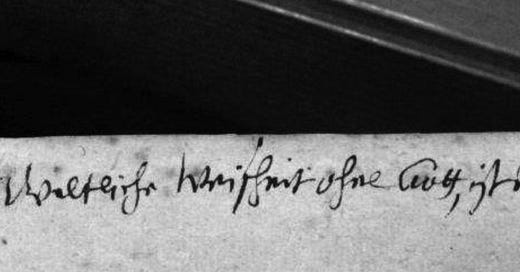 Weltliche Weisheit ohne Gott, ist